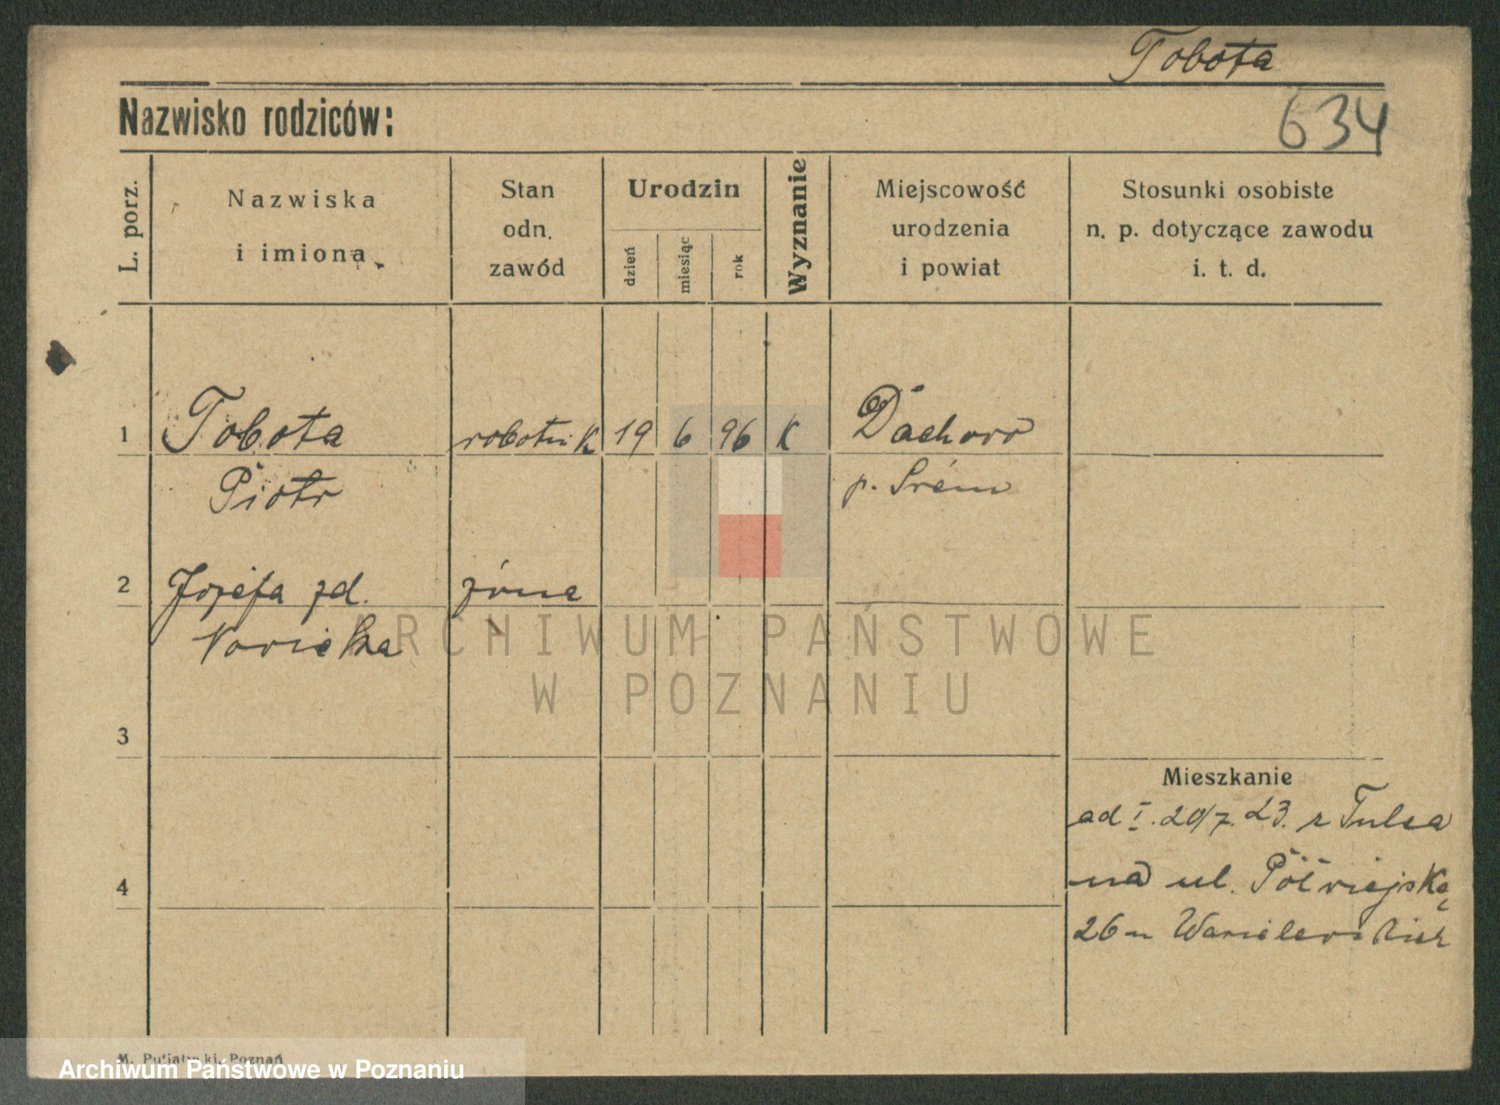 Tobota
Nazwisko rodziców:
634
L. porz.
Nazwiska
i imiona
Stan
odn.
zawód
Urodzin
dzień
miesiąc
rok
Wyznanie
Miejscowość
urodzenia
i powiat
Stosunki osobiste
n. p. dotyczące zawodu
i. t. d.
1
Tobota
robotnik
19
6
96
K
Dachowo
Piotr
p. Śrem
2
Józefa zd.
żona
Nowicka
ARCHIWUM PAŃSTWOWE
W POZNANIU
3
Mieszkanie
ad I. 20/7. 23. z Tulca
4
na ul. Półwiejską
26 u
M. Putiatycki, Poznań
Archiwum Państwowe w Poznaniu